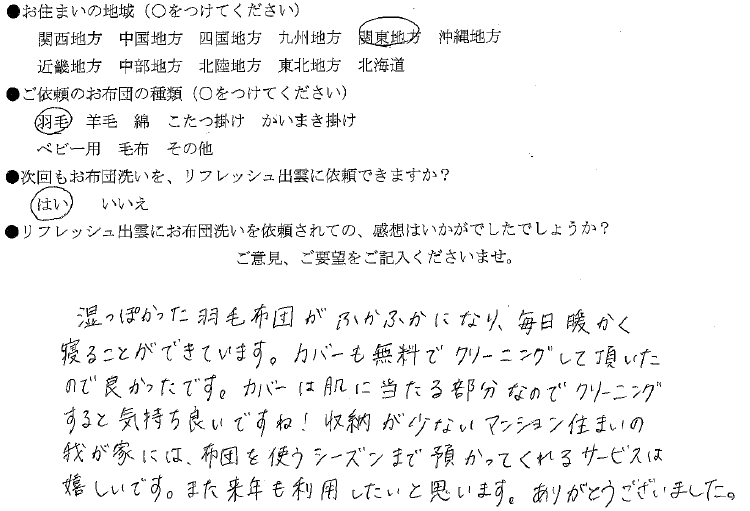 ●お住まいの地域（○をつけてください）
関西地方　中国地方　四国地方　九州地方　関東地方　沖縄地方
近畿地方　中部地方　北陸地方　東北地方　北海道
●ご依頼のお布団の種類（○をつけてください）
羽毛　羊毛　綿　こたつ掛け　かいまき掛け
ベビー用　毛布　その他
●次回もお布団洗いを、リフレッシュ出雲に依頼できますか？
はい　　いいえ
●リフレッシュ出雲にお布団洗いを依頼されての、感想はいかがでしたでしょうか？
ご意見、ご要望をご記入くださいませ。
湿っぽかった羽毛布団がふかふかになり、毎日暖かく
寝ることができています。カバーも無料でクリーニングして頂いた
ので良かったです。カバーは肌に当たる部分なのでクリーニング
すると気持ち良いですね！収納が少ないマンション住まいの
我が家には、布団を使うシーズンまで預かってくれるサービスは
嬉しいです。また来年も利用したいと思います。ありがとうございました。